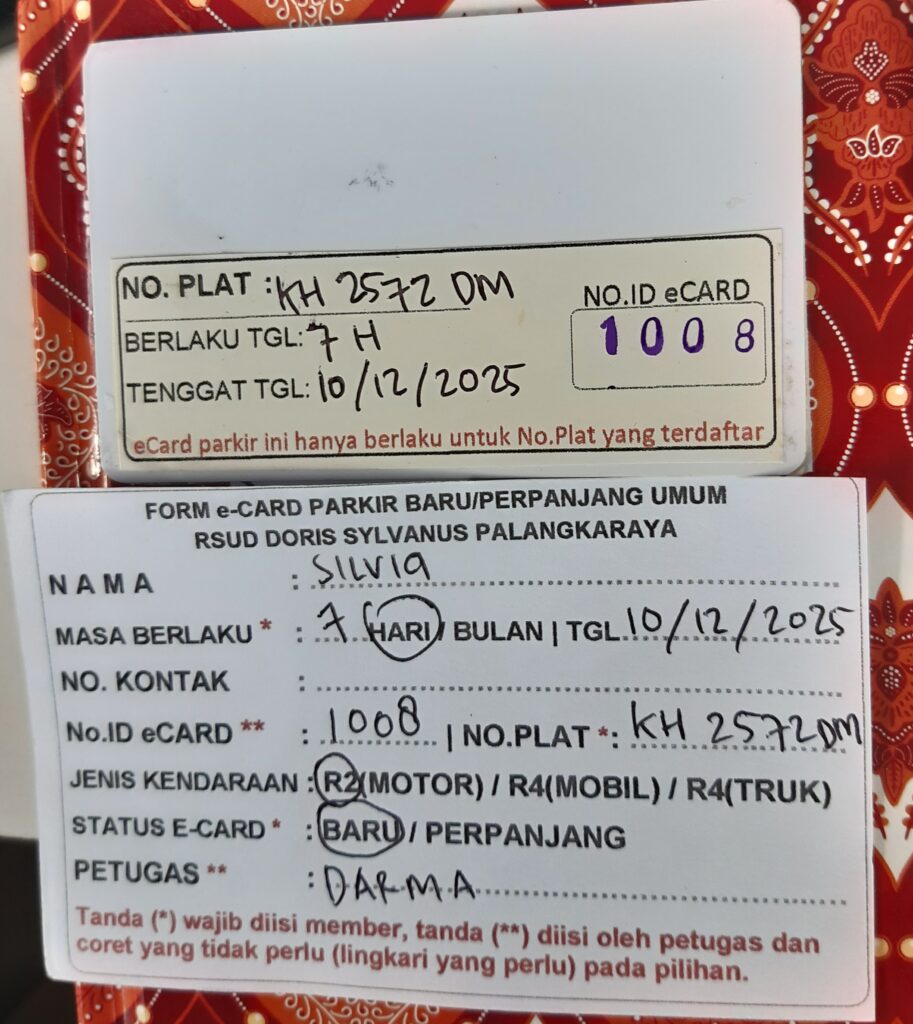 NO. PLAT : KH 2572 DM
NO.ID eCARD
1008
BERLAKU TGL: 7 H
TENGGAT TGL: 10/12/2025
eCard parkir ini hanya berlaku untuk No.Plat yang terdaftar
FORM e-CARD PARKIR BARU/PERPANJANG UMUM
RSUD DORIS SYLVANUS PALANGKARAYA
NAMA : SILVIA
MASA BERLAKU * : 7 HARI / BULAN | TGL 10/12/2025
NO. KONTAK :
No.ID eCARD ** : 1008 | NO.PLAT *: KH 2572 DM
JENIS KENDARAAN : R2(MOTOR) / R4(MOBIL) / R4(TRUK)
STATUS E-CARD * : BARU / PERPANJANG
PETUGAS ** : DARMA
Tanda (*) wajib diisi member, tanda (**) diisi oleh petugas dan
coret yang tidak perlu (lingkari yang perlu) pada pilihan.